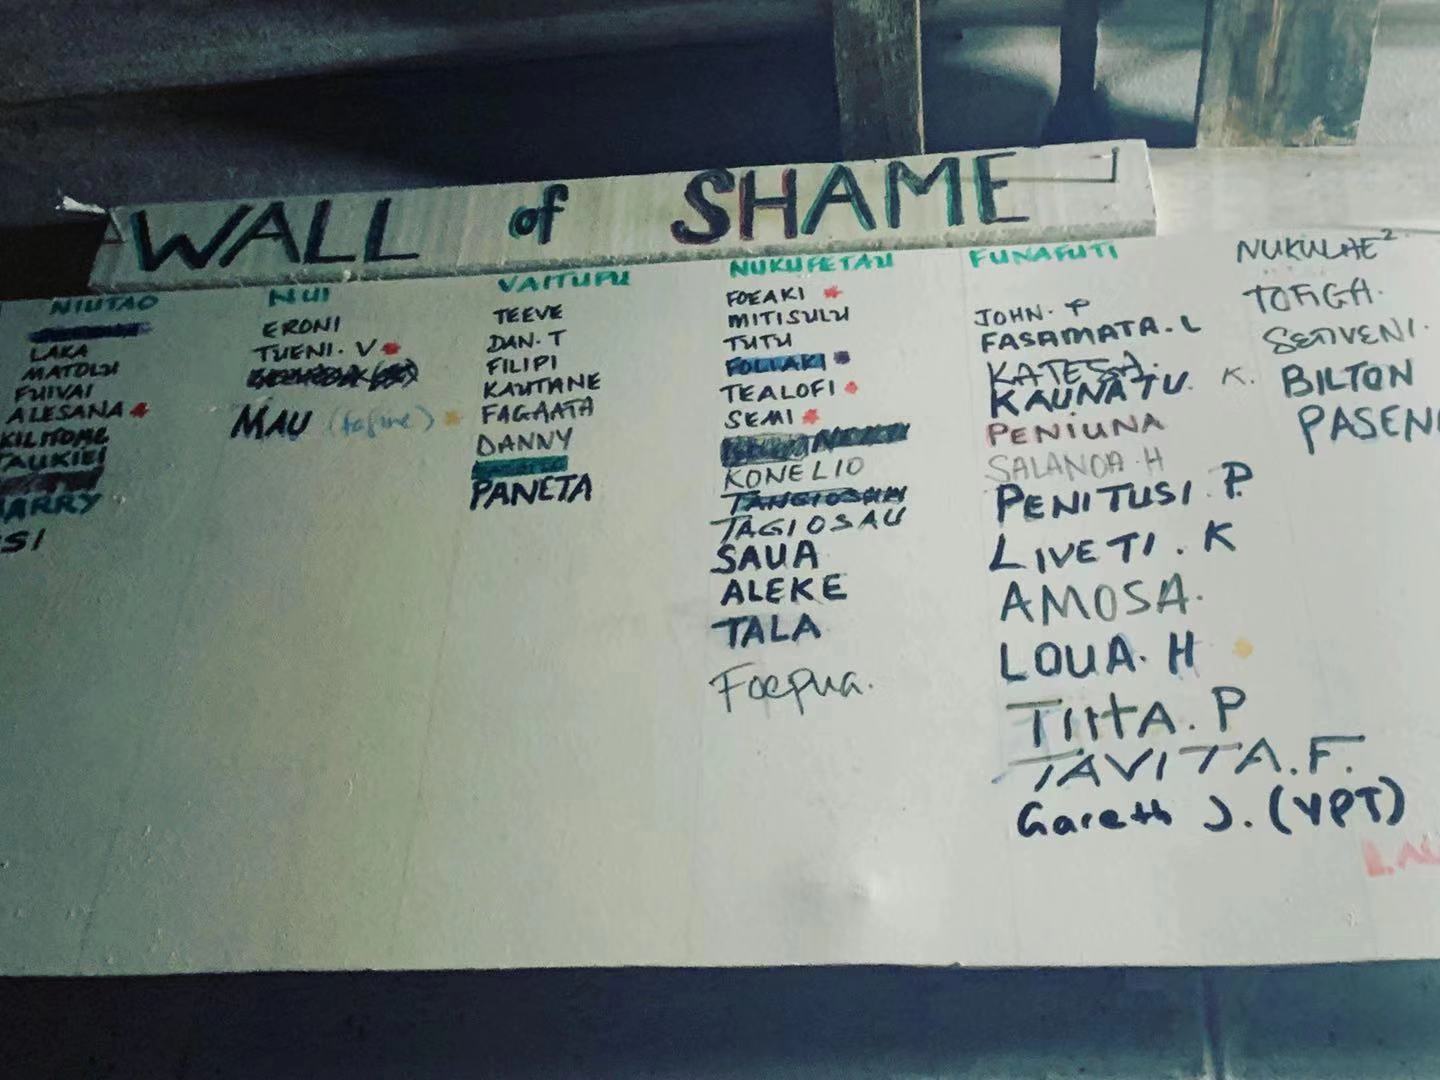 WALL of SHAME
NIUTAO
LAKA
MATOLU
FUIVAI
ALESANA
KILITOME
TAUKIEI
ARRY
SI
NUI
ERONI
TUENI. V
MAU (fafine)
VAITUPU
TEEVE
DAN. T
FILIPI
KAUTANE
FAGAATA
DANNY
PANETA
NUKUFETAU
FOEAKI
MITISULU
TUTU
FOLIAKI
TEALOFI
SEMI
KONELIO
TANGIOSAU
TAGIOSAU
SAUA
ALEKE
TALA
Foepua.
FUNAFUTI
JOHN. P
FASAMATA. L
KATESA.
KAUNATU. K.
PENIUNA
SALANOA. H
PENITUSI. P.
LIVETI. K
AMOSA.
LOUA. H
TIITA. P
TAVITA. F.
Gareth J. (VPT)
NUKULAE²
TOFIGA.
SETIVENI.
BILTON
PASENI